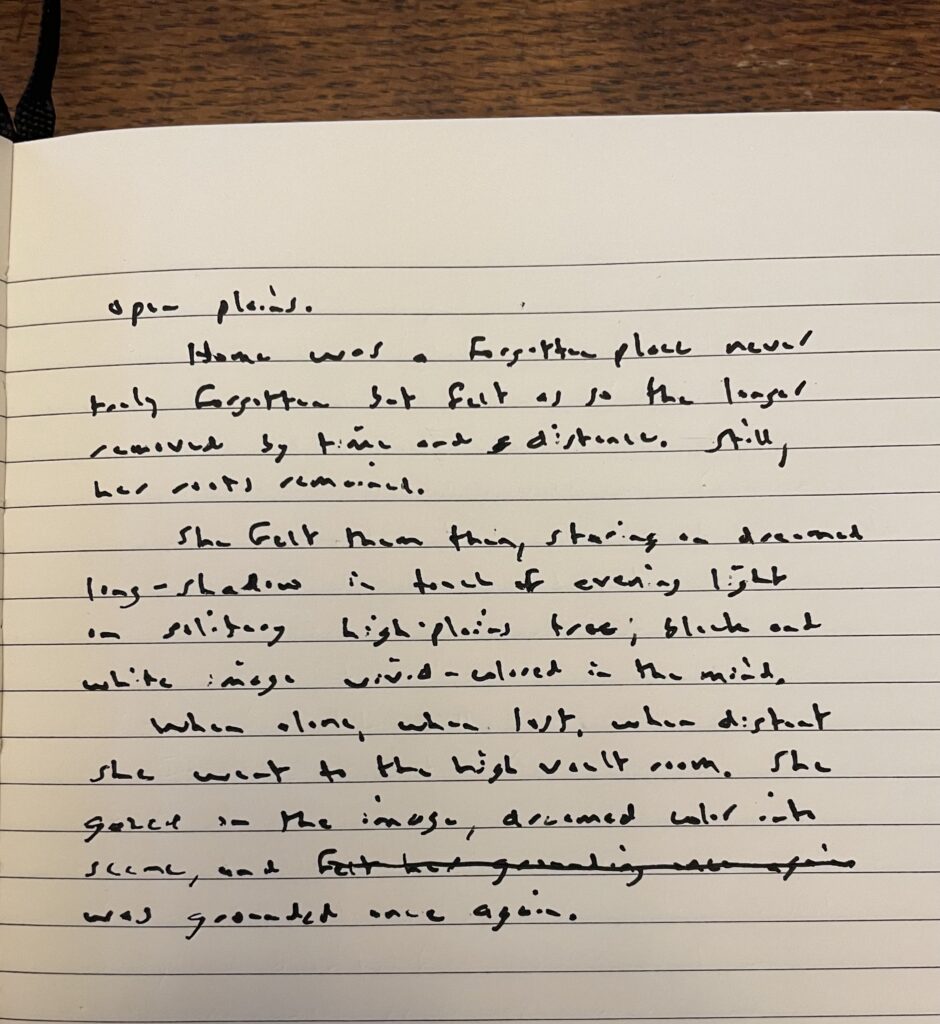 open plains.
Home was a forgotten place never
truly forgotten but felt as so the longer
removed by time and distance. Still,
her roots remained.
She felt them then, staring on dreamed
long-shadow in touch of evening light
on solitary high-plains tree; black and
white image vivid-colored in the mind.
When alone, when lost, when distant
she went to the high vault room. She
gazed on the image, dreamed color into
scene, and felt her grounding once again
was grounded once again.